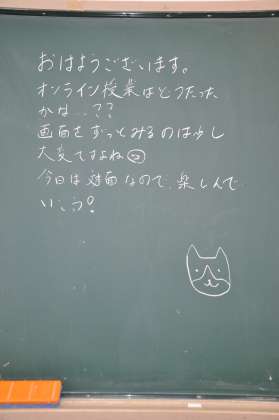 おはようございます。
オンライン授業はどうだった
かな…??
画面をずっとみるのは少し
大変ですよね
今日は対面なので、楽しんで
いこう!